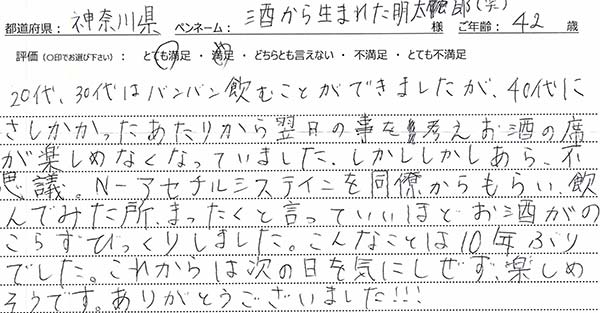 都道府県： 神奈川県 ペンネーム： 酒から生まれた明太郎(笑) 様 ご年齢： 42 歳
評価（○印でお選び下さい） ： とても満足 ・ 満足 ・ どちらとも言えない ・ 不満足 ・ とても不満足
20代、30代はバンバン飲むことができましたが、40代に
さしかかったあたりから翌日の事を考えお酒の席
が楽しめなくなっていました、しかししかしあら、不
思議。N-アセチルシステインを同僚からもらい、飲
んでみた所、まったくと言っていいほどお酒がの
こらずびっくりしました。こんなことは10年ぶり
でした。これからは次の日を気にしせず、楽しめ
そうです。ありがとうございました!!!